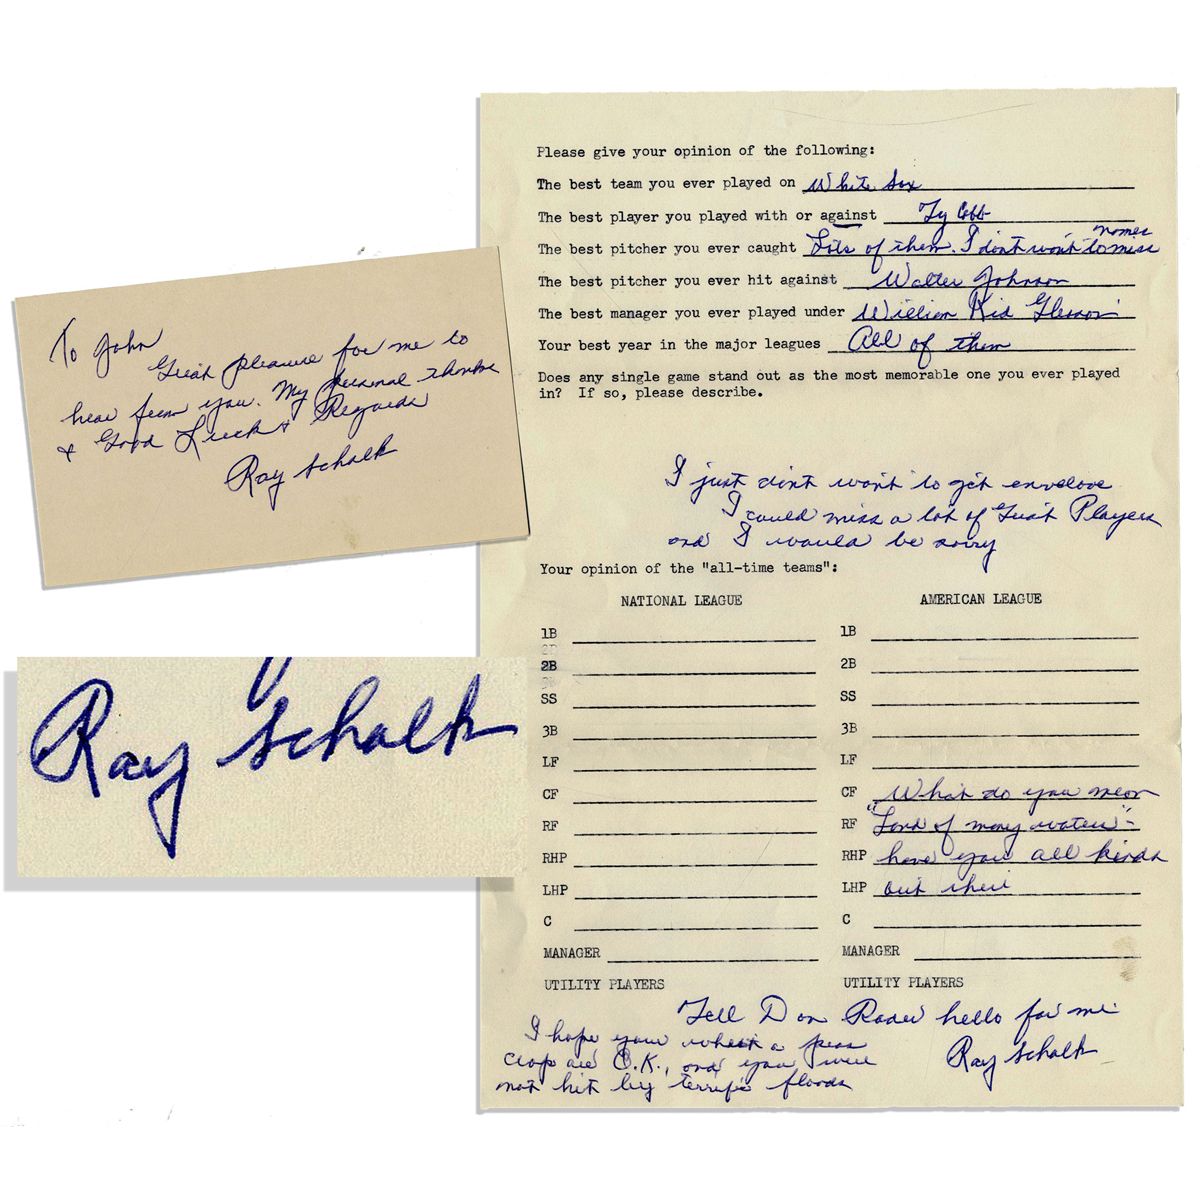 To John
Great pleasure for me to
hear from you. My personal thanks
& Good Luck & Regards
Ray Schalk
Ray Schalk
Please give your opinion of the following:
The best team you ever played on White Sox
The best player you played with or against Ty Cobb
The best pitcher you ever caught Lots of them. I don't won't to miss names
The best pitcher you ever hit against Walter Johnson
The best manager you ever played under William Kid Gleason
Your best year in the major leagues All of them
Does any single game stand out as the most memorable one you ever played
in? If so, please describe.
I just don't won't to get envelove
I could miss a lot of Great Players
and I would be sorry
Your opinion of the "all-time teams":
NATIONAL LEAGUE AMERICAN LEAGUE
1B 1B
2B 2B
SS SS
3B 3B
LF LF
CF CF What do you mean
RF RF "Land of many waters"-
RHP RHP have you all kinds
LHP LHP out their
C C
MANAGER MANAGER
UTILITY PLAYERS UTILITY PLAYERS
Tell Don Rader hello for me
Ray Schalk
I hope your wheat & peas
crop are O.K., and you were
not hit by terrific floods